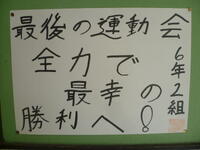 最後の運動会
全力で
最幸の
勝利へ!
6年2組